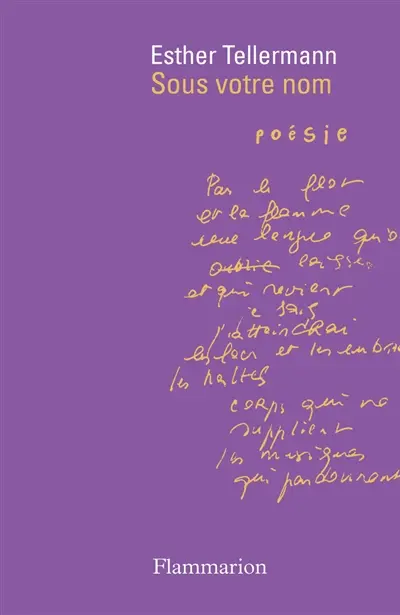 Esther Tellermann
Sous votre nom
poésie
Par le flot
et la flamme
une langue qu'o
oublie laisse
et qui revient
je sais
j'attendrai
et les
les haltes
corps qui ne
supplient
les musiques
qui parcourent
Flammarion